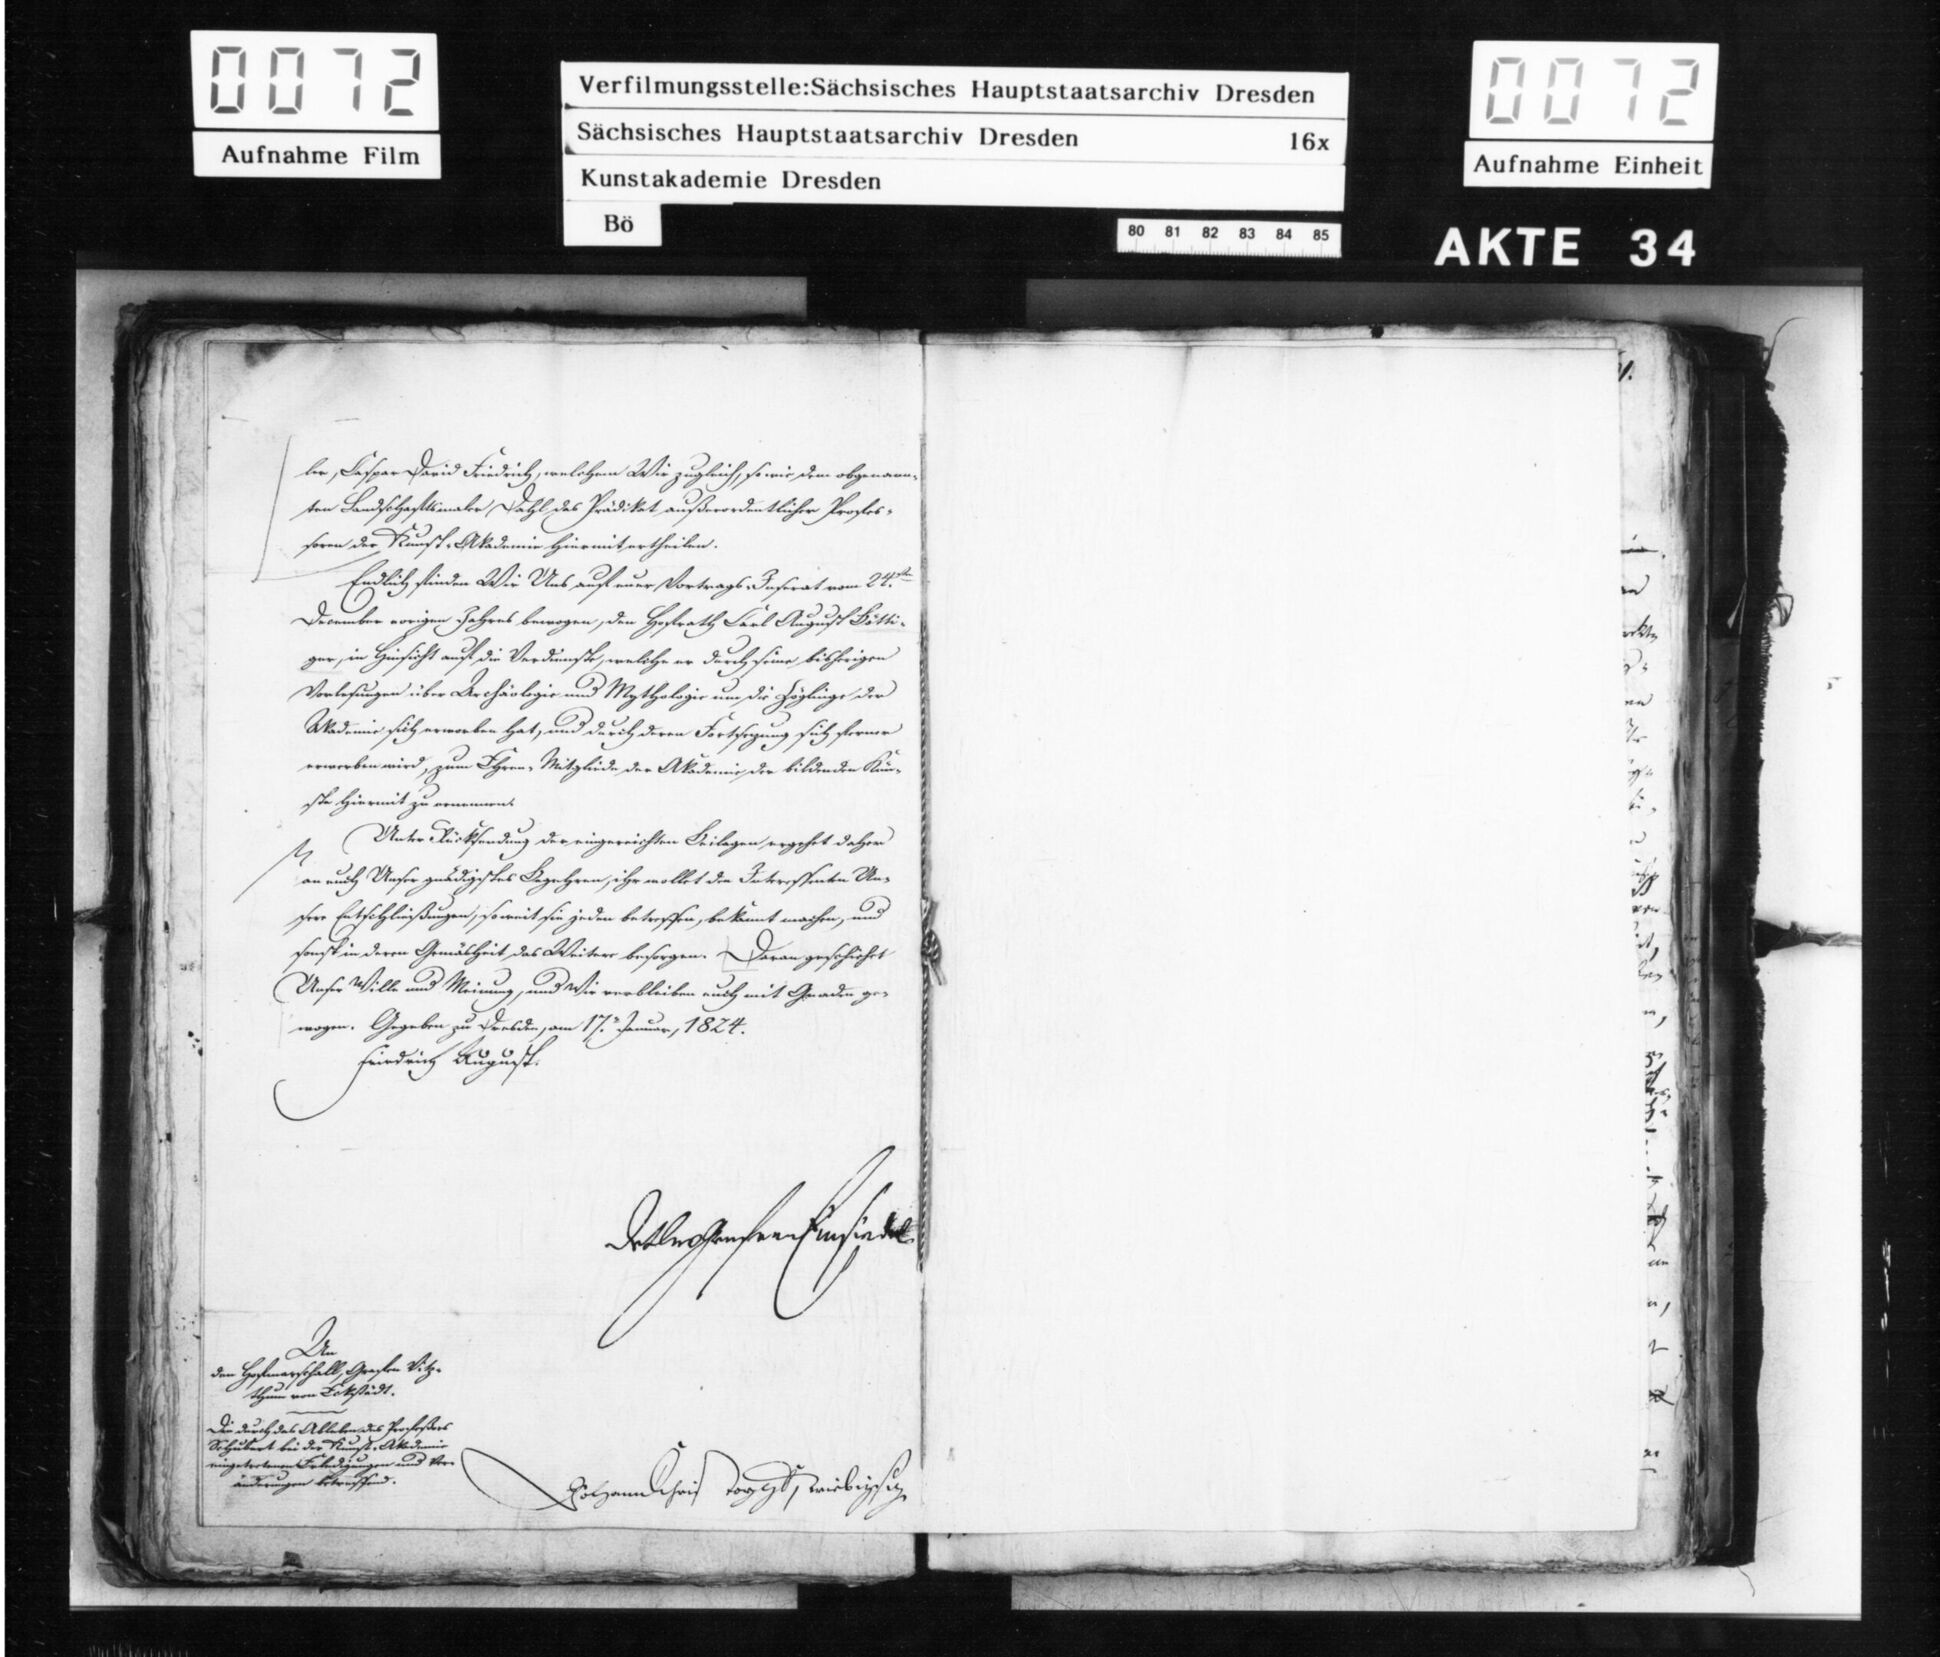 0072
Aufnahme Film
Verfilmungsstelle:Sächsisches Hauptstaatsarchiv Dresden
Sächsisches Hauptstaatsarchiv Dresden 16x
Kunstakademie Dresden
Bö
80 81 82 83 84 85
0072
Aufnahme Einheit
AKTE 34
ler, Caspar David Friedrich, welchem Wir zugleich, so wie dem obgenann-
ten Landschaftsmaler Dahl das Prädikat außerordentlicher Profes-
soren der Kunst-Akademie hiermit ertheilen.
Endlich finden Wir Uns auf euer Vortrags-Inserat vom 24.sten
December vorigen Jahres bewogen, den Hofrath Carl August Bötti-
ger, in Hinsicht auf die Verdienste, welche er durch seine bisherigen
Vorlesungen über Archäologie und Mythologie um die Zöglinge der
Akademie sich erworben hat, und durch deren Fortsetzung sich ferner
erwerben wird, zum Ehren-Mitgliede der Akademie der bildenden Kün-
ste hiermit zu ernennen.
Unter Rücksendung der eingereichten Beilagen ergehet daher
an euch Unser gnädigstes Begehren, ihr wollet den Interessenten Un-
sere Entschließungen, soweit sie jeden betreffen, bekannt machen, und
sonst in deren Gemäsheit das Weitere besorgen. Daran geschiehet
Unser Wille und Meinung, und Wir verbleiben euch mit Gnaden ge-
wogen. Gegeben zu Dresden, am 17. Januar, 1824.
Friedrich August.
Detlev Graf von Einsiedel
An
den Hofmarschall, Grafen Vitz-
thum von Eckstädt.
Die durch das Ableben des Professors
Schubert bei der Kunst-Akademie
eingetretenen Erledigungen und Ver-
änderungen betreffend.
Johann